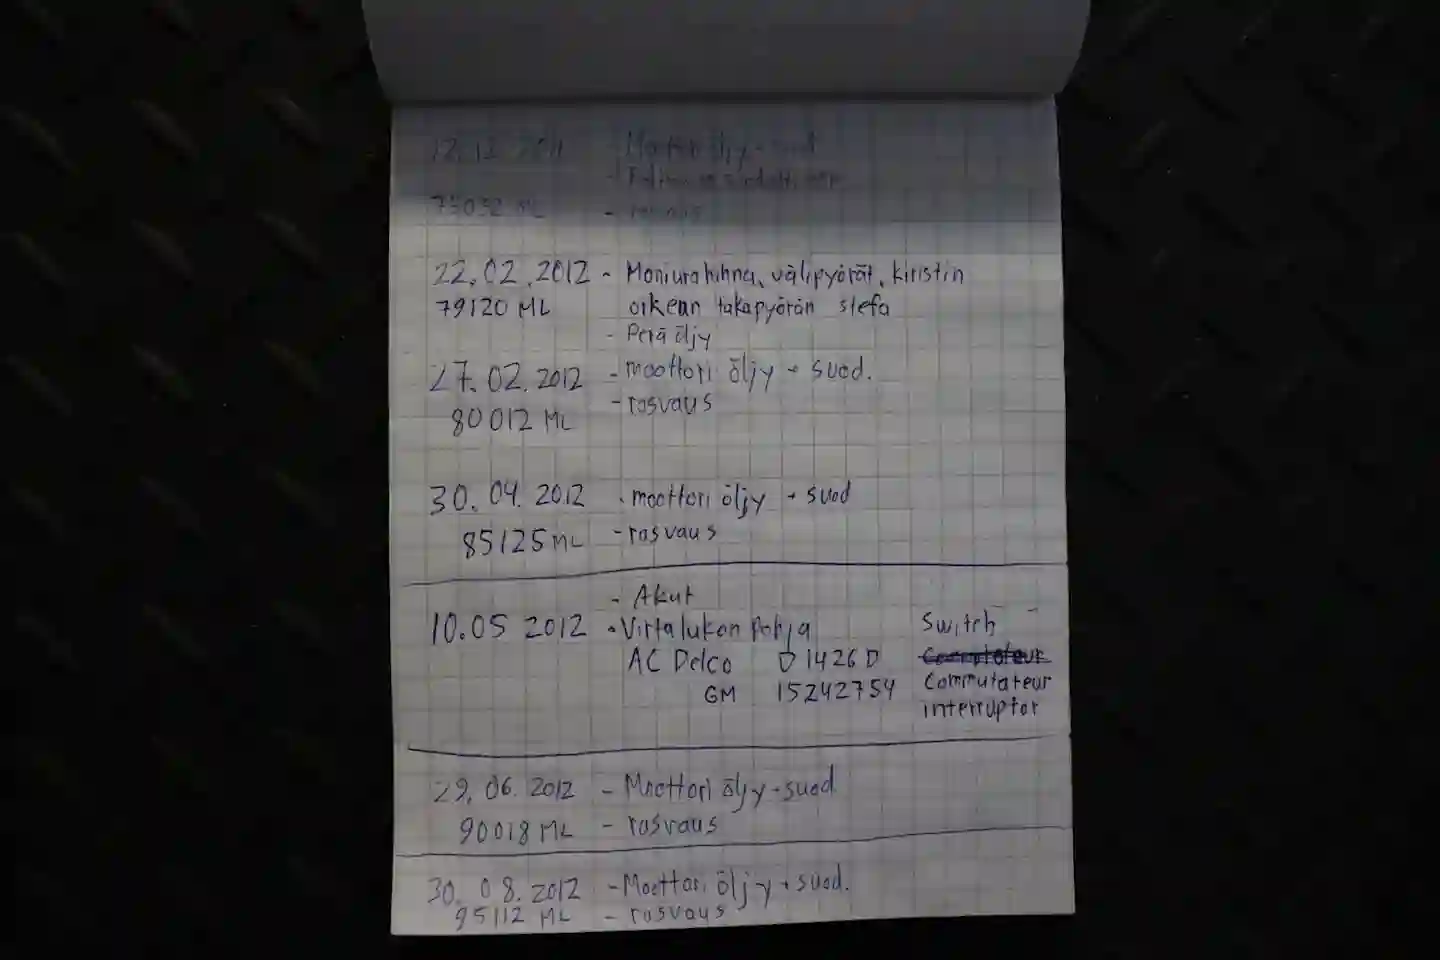 12.12 2011 - Moottori öljy + suod
75032 ML - rasvaus
22.02.2012 - Moniurahihna, välipyörät, kiristin
79120 ML oikean takapyörän stefa
- Perä öljy
27.02.2012 - moottori öljy + suod.
80012 ML - rasvaus
30.04.2012 - moottori öljy + suod
85125 ML - rasvaus
- Akut
10.05 2012 - Virtalukon pohja Switch
AC Delco D1426D
GM 15242754 Commutateur
interruptor
29.06.2012 - Moottori öljy + suod
90018 ML - rasvaus
30.08.2012 - Moottori öljy + suod.
95112 ML - rasvaus